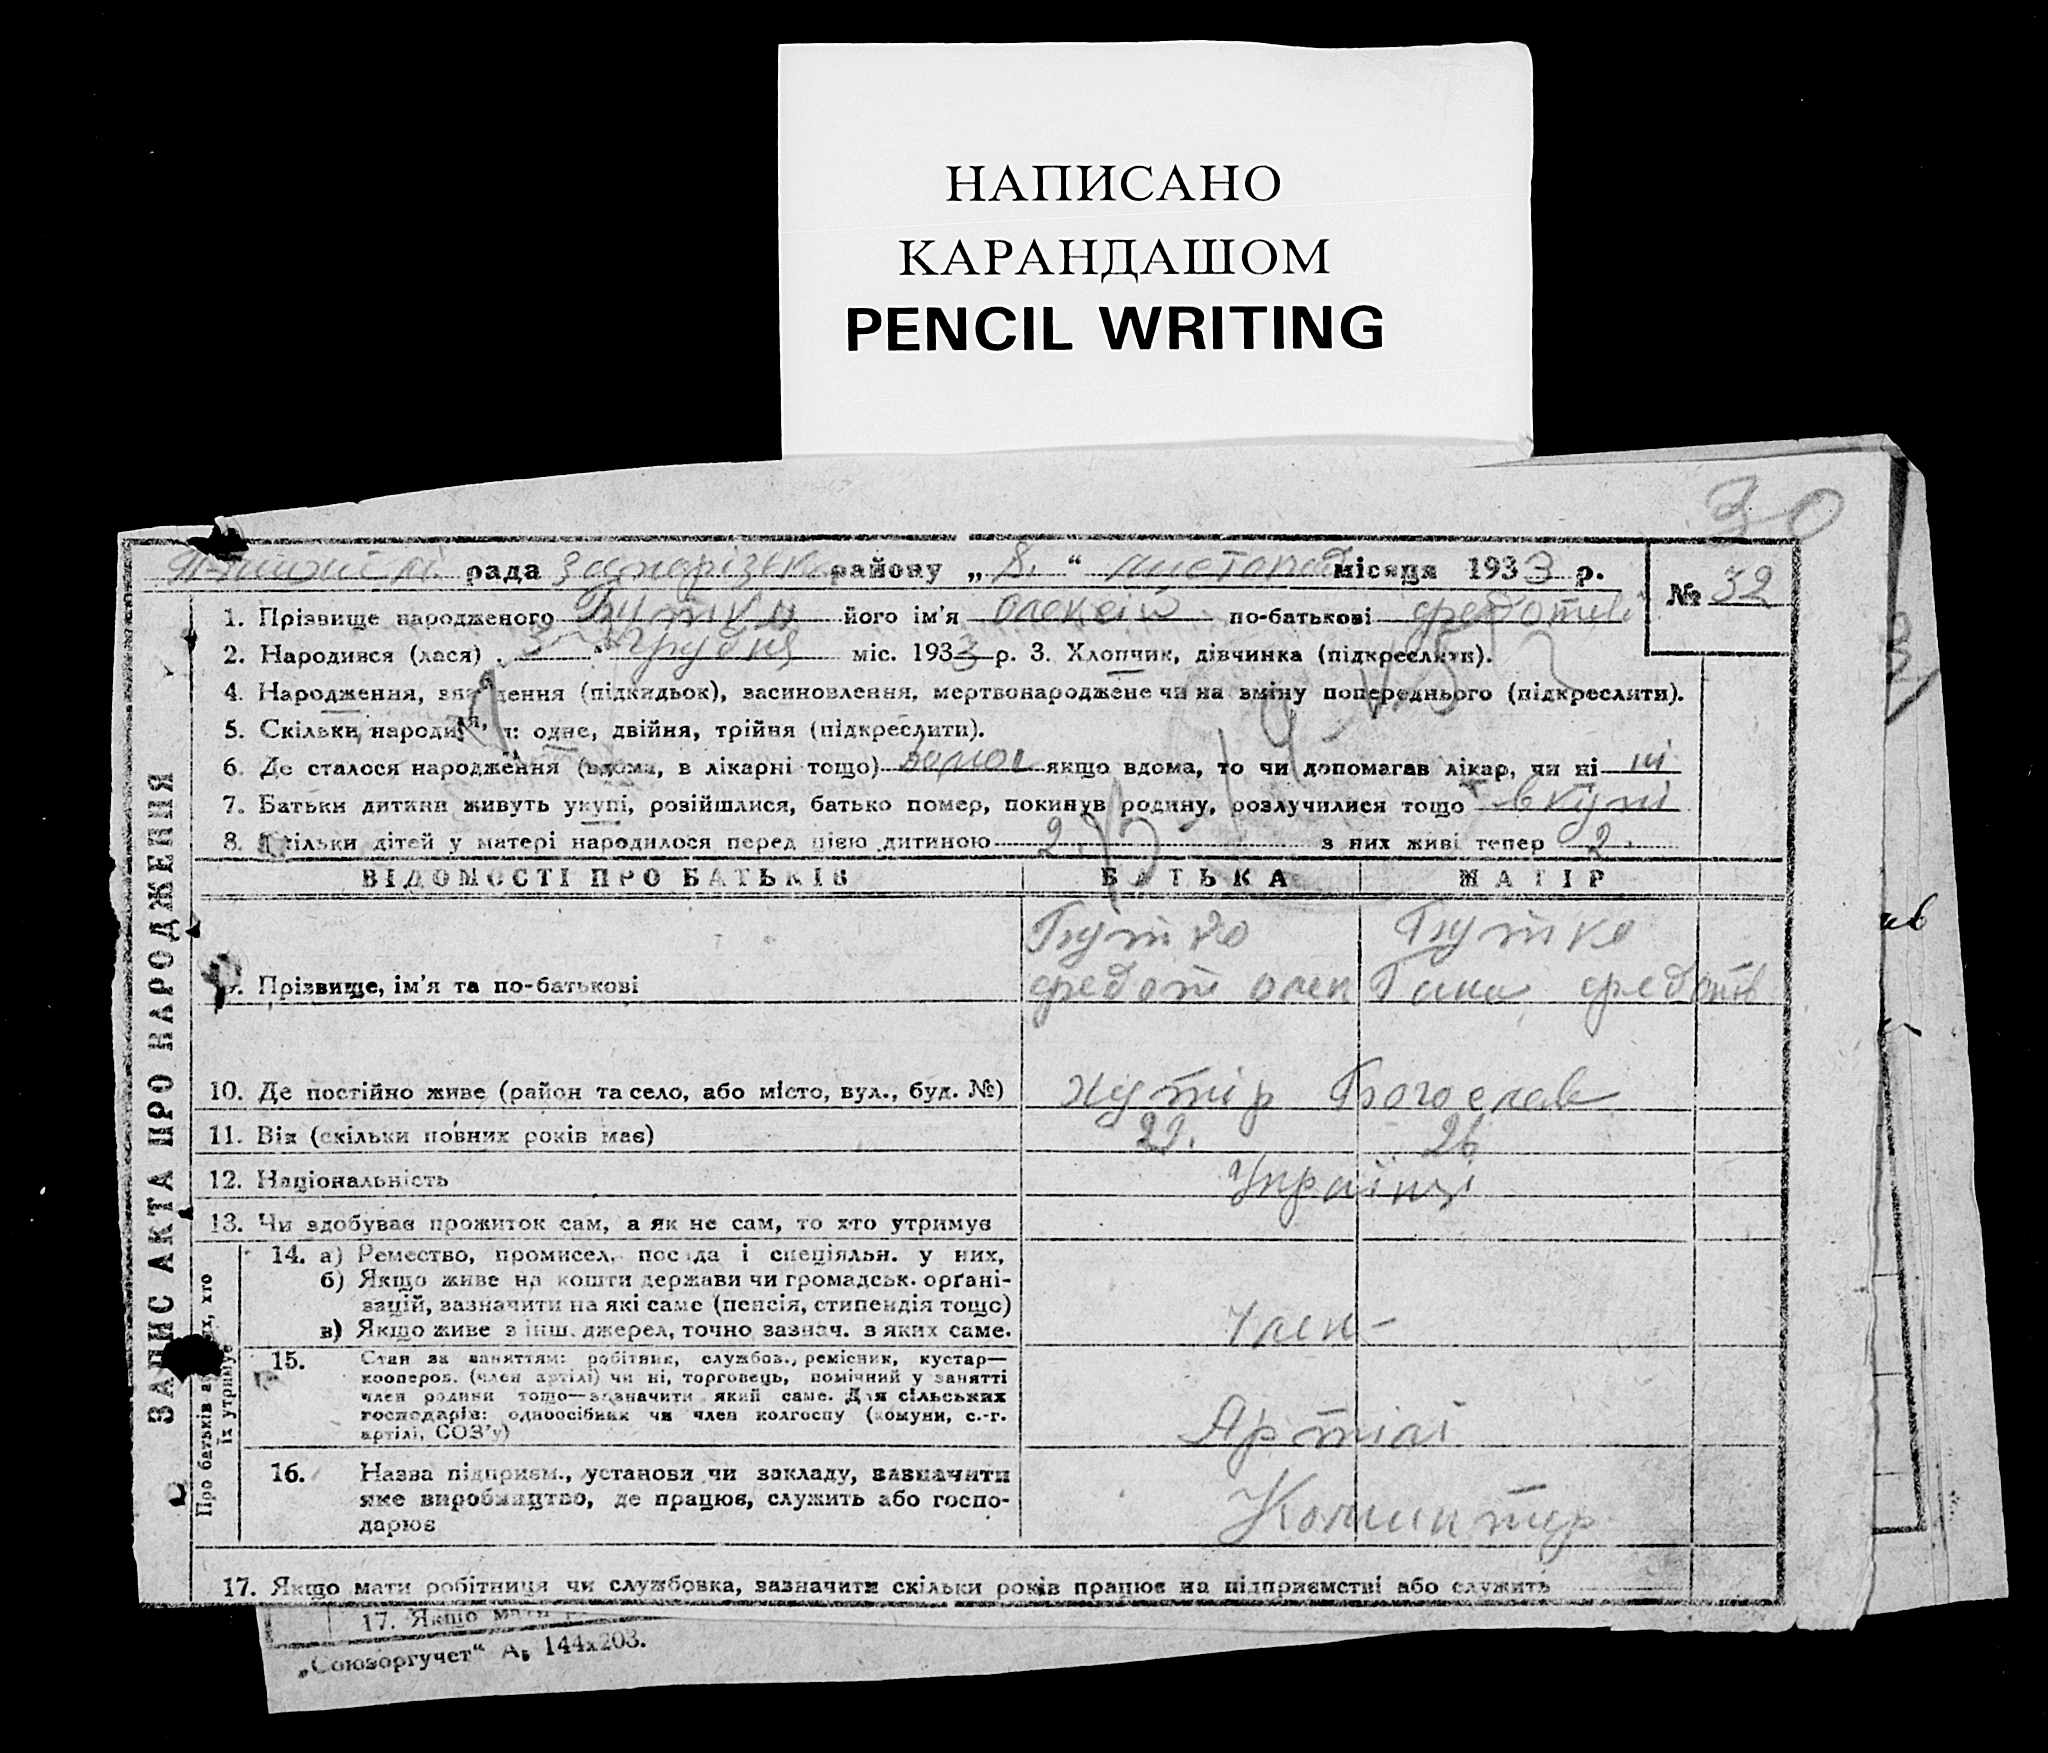 НАПИСАНО
КАРАНДАШОМ
PENCIL WRITING
30
рада району „ 8. “ листопад місяця 1933 р.
№ 32
1. Прізвище народженого його ім'я Олексій по-батькові Федотів
2. Народився (лася) „ 3 “ грудня міс. 1933 р. 3. Хлопчик, дівчинка (підкреслити).
4. Народження, зна дення (підкидьок), васиновлення, мертвонароджене чи на зміну попереднього (підкреслити).
5. Скільки народи : одне, двійня, трійня (підкреслити).
6. Де сталося народження (вдома, в лікарні тощо) вдома якщо вдома, то чи допомагав лікар, чи ні ні
7. Батьки дитини живуть укупі, розійшлися, батько помер, покинув родину, розлучилися тощо вкупі
8. Скільки дітей у матері народилося перед цією дитиною 2 з них живі тепер 2.
ВІДОМОСТІ ПРО БАТЬКІВ БАТЬКА МАТІР
Бутко Бутко
9. Прізвище, ім'я та по-батькові Федот Олек Гана Федотів
10. Де постійно живе (район та село, або місто, вул., буд. №) Хутір Богослав
11. Вік (скільки повних років має) 29. 26
12. Національність Українці
13. Чи здобуває прожиток сам, а як не сам, то хто утримує
14. а) Ремество, промисел, посада і спеціяльн. у них,
б) Якщо живе на кошти держави чи громадськ. орґані-
зацій, зазначити на які саме (пенсія, стипендія тощо)
в) Якщо живе з інш. джерел, точно зазнач. з яких саме. Член
15. Стан за заняттям: робітник, службов., ремісник, кустар—
коопером. (член артілі) чи ні, торговець, помічний у занятті
член родини тощо—зазначити який саме. Для сільських
господарів: одноосібник чи член колгоспу (комуни, с.-г.
артілі, СОЗ'у) Артілі
16. Назва підприєм., установи чи закладу, зазначити
яке виробництво, де працює, служить або госпо-
дарює Коминтер
17. Якщо мати робітниця чи службовка, зазначити скільки років працює на підприємстві або служить
ЗАПИС АКТА ПРО НАРОДЖЕННЯ
Про батьків а их, хто
їх утримує
17. Якщо мати
„Союзоргучет“ А₅ 144х203.